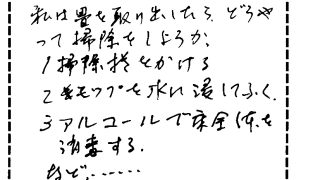 私は畳を取り出したら、どうや
って掃除をしようか、
1掃除機をかける
2モップを水に浸してふく、
3アルコールで床全体を
消毒する.
など、……